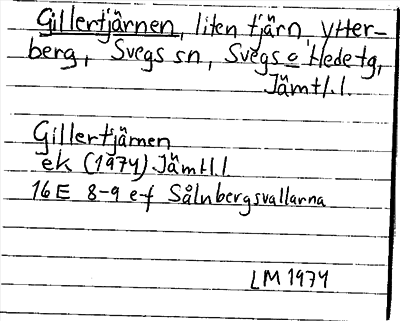 Gillertjärnen, liten tjärn, Ytter-
berg, Svegs sn, Svegs o Hede tg,
Jämtl. l.
Gillertjärnen
ek (1974) Jämtl. l
16 E 8-9 e-f Sålnbergsvallarna
LM 1974